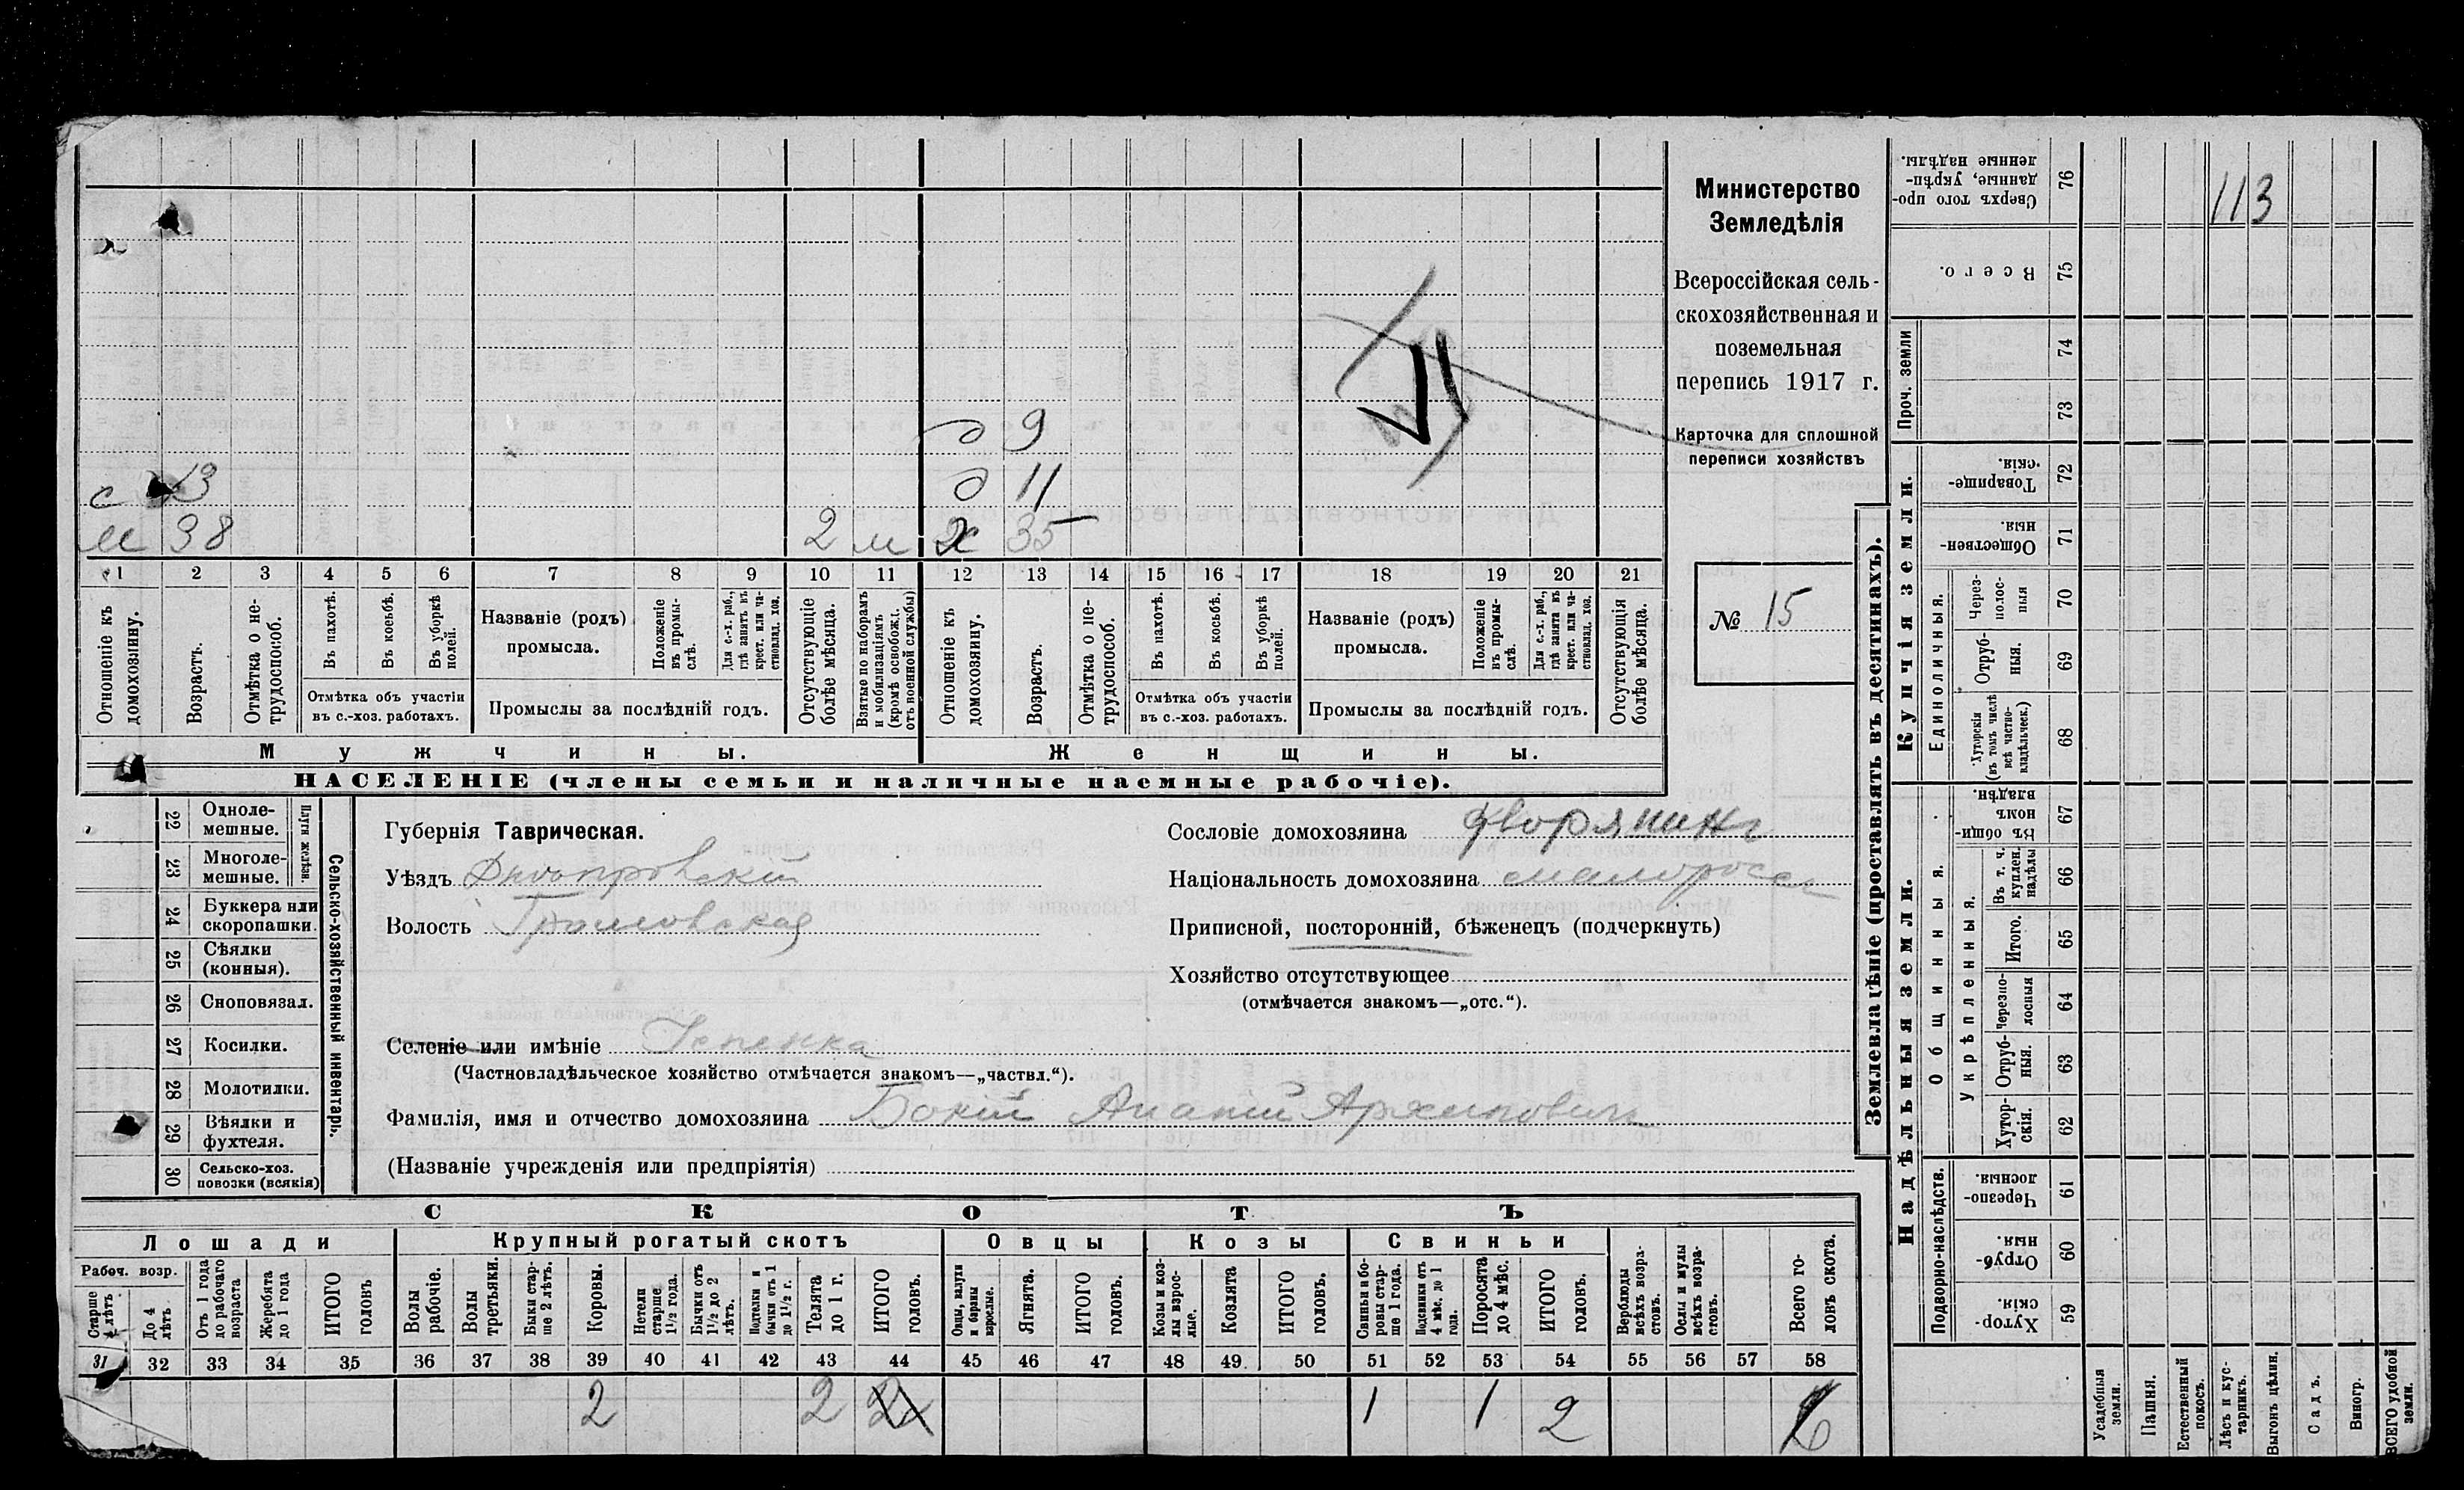 Министерство
Земледѣлія
Всероссійская сель-
скохозяйственная и
поземельная
перепись 1917 г.
Карточка для сплошной
переписи хозяйствъ
№ 15
д 9
д 11
с 13
м 38 2 м ж 35
1 2 3 4 5 6 7 8 9 10 11 12 13 14 15 16 17 18 19 20 21
Отношеніе къ домохозяину.
Возрастъ.
Отмѣтка о не-трудоспособ.
Въ пахотѣ.
Въ косьбѣ.
Въ уборкѣ полей.
Отмѣтка объ участіи
въ с.-хоз. работахъ.
Названіе (родъ)
промысла.
Положеніе въ промы-слѣ.
Для с.-х. раб., гдѣ занятъ въ крест. или ча-стновлад. хоз.
Промыслы за послѣдній годъ.
Отсутствующіе болѣе мѣсяца.
Взятые по наборамъ и мобилизаціямъ (кромѣ освобожд. отъ военной службы)
Отношеніе къ домохозяину.
Возрастъ.
Отмѣтка о не-трудоспособ.
Въ пахотѣ.
Въ косьбѣ.
Въ уборкѣ полей.
Отмѣтка объ участіи
въ с.-хоз. работахъ.
Названіе (родъ)
промысла.
Положеніе въ промы-слѣ.
Для с.-х. раб., гдѣ занята въ крест. или ча-стновлад. хоз.
Промыслы за послѣдній годъ.
Отсутствующія болѣе мѣсяца.
Мужчины. Женщины.
НАСЕЛЕНІЕ (члены семьи и наличные наемные рабочіе).
Сельско-хозяйственный инвентарь.
Плуги желѣзн.
22 Одноле-мешные.
23 Многоле-мешные.
24 Буккера или скоропашки.
25 Сѣялки (конныя).
26 Сноповязал.
27 Косилки.
28 Молотилки.
29 Вѣялки и фухтеля.
30 Сельско-хоз. повозки (всякія)
Губернія Таврическая.
Уѣздъ Днѣпровскій
Волость Громовская
Сословіе домохозяина дворянинъ
Національность домохозяина малороссъ
Приписной, посторонній, бѣженецъ (подчеркнуть)
Хозяйство отсутствующее
(отмѣчается знакомъ—„отс.“).
Селеніе или имѣніе Успенка
(Частновладѣльческое хозяйство отмѣчается знакомъ—„частвл.“).
Фамилія, имя и отчество домохозяина Бокій Ананій Архиповичъ
(Названіе учрежденія или предпріятія)
СКОТЪ
Лошади Крупный рогатый скотъ Овцы Козы Свиньи
Рабоч. возр.
Старше 4 лѣтъ
До 4 лѣтъ
Отъ 1 года до рабочаго возраста
Жеребята до 1 года
ИТОГО головъ
Волы рабочіе.
Волы третьяки.
Быки стар-ше 2 лѣтъ.
Коровы.
Нетели старше 1½ года.
Бычки отъ 1½ до 2 лѣтъ.
Подтелки и бычки отъ 1 до 1½ г.
Телята до 1 г.
ИТОГО головъ.
Овцы, валухи и бараны взрослые.
Ягнята.
ИТОГО головъ.
Козы и коз-лы взрос-лые.
Козлята
ИТОГО головъ.
Свиньи и бо-ровы стар-ше 1 года.
Подсвинки отъ 4 мѣс. до 1 года.
Поросята до 4 мѣс.
ИТОГО головъ.
Верблюды всѣхъ возра-стовъ.
Ослы и мулы всѣхъ возра-стовъ.
Всего го-ловъ скота.
31 32 33 34 35 36 37 38 39 40 41 42 43 44 45 46 47 48 49 50 51 52 53 54 55 56 57 58
2 2 1 1 2
Землевладѣніе (проставлять въ десятинахъ).
Купчія земли. Надѣльныя земли.
Сверхъ того про-данные, укрѣп-ленные надѣлы. 76
113
Всего. 75
Проч. земли 74 73
Товарище-скія. 72
Обществен-ныя. 71
Единоличныя.
Через-полос-ныя 70
Отруб-ныя. 69
Хуторскія (въ томъ числѣ всѣ частно-владѣльческ.) 68
Общинныя.
Въ общи-номъ владѣн. 67
Укрѣпленныя.
Въ т. ч. куплен. надѣлы 66
Итого. 65
Черезпо-лосныя 64
Отруб-ныя. 63
Хутор-скія. 62
Подворно-наслѣдств.
Черезпо-лосныя. 61
Отруб-ныя. 60
Хутор-скія. 59
Усадебныя земли.
Пашня.
Естественный покосъ.
Лѣсъ и кус-тарникъ.
Выгонъ цѣлин.
Садъ.
Виногр.
ВСЕГО удобной земли.